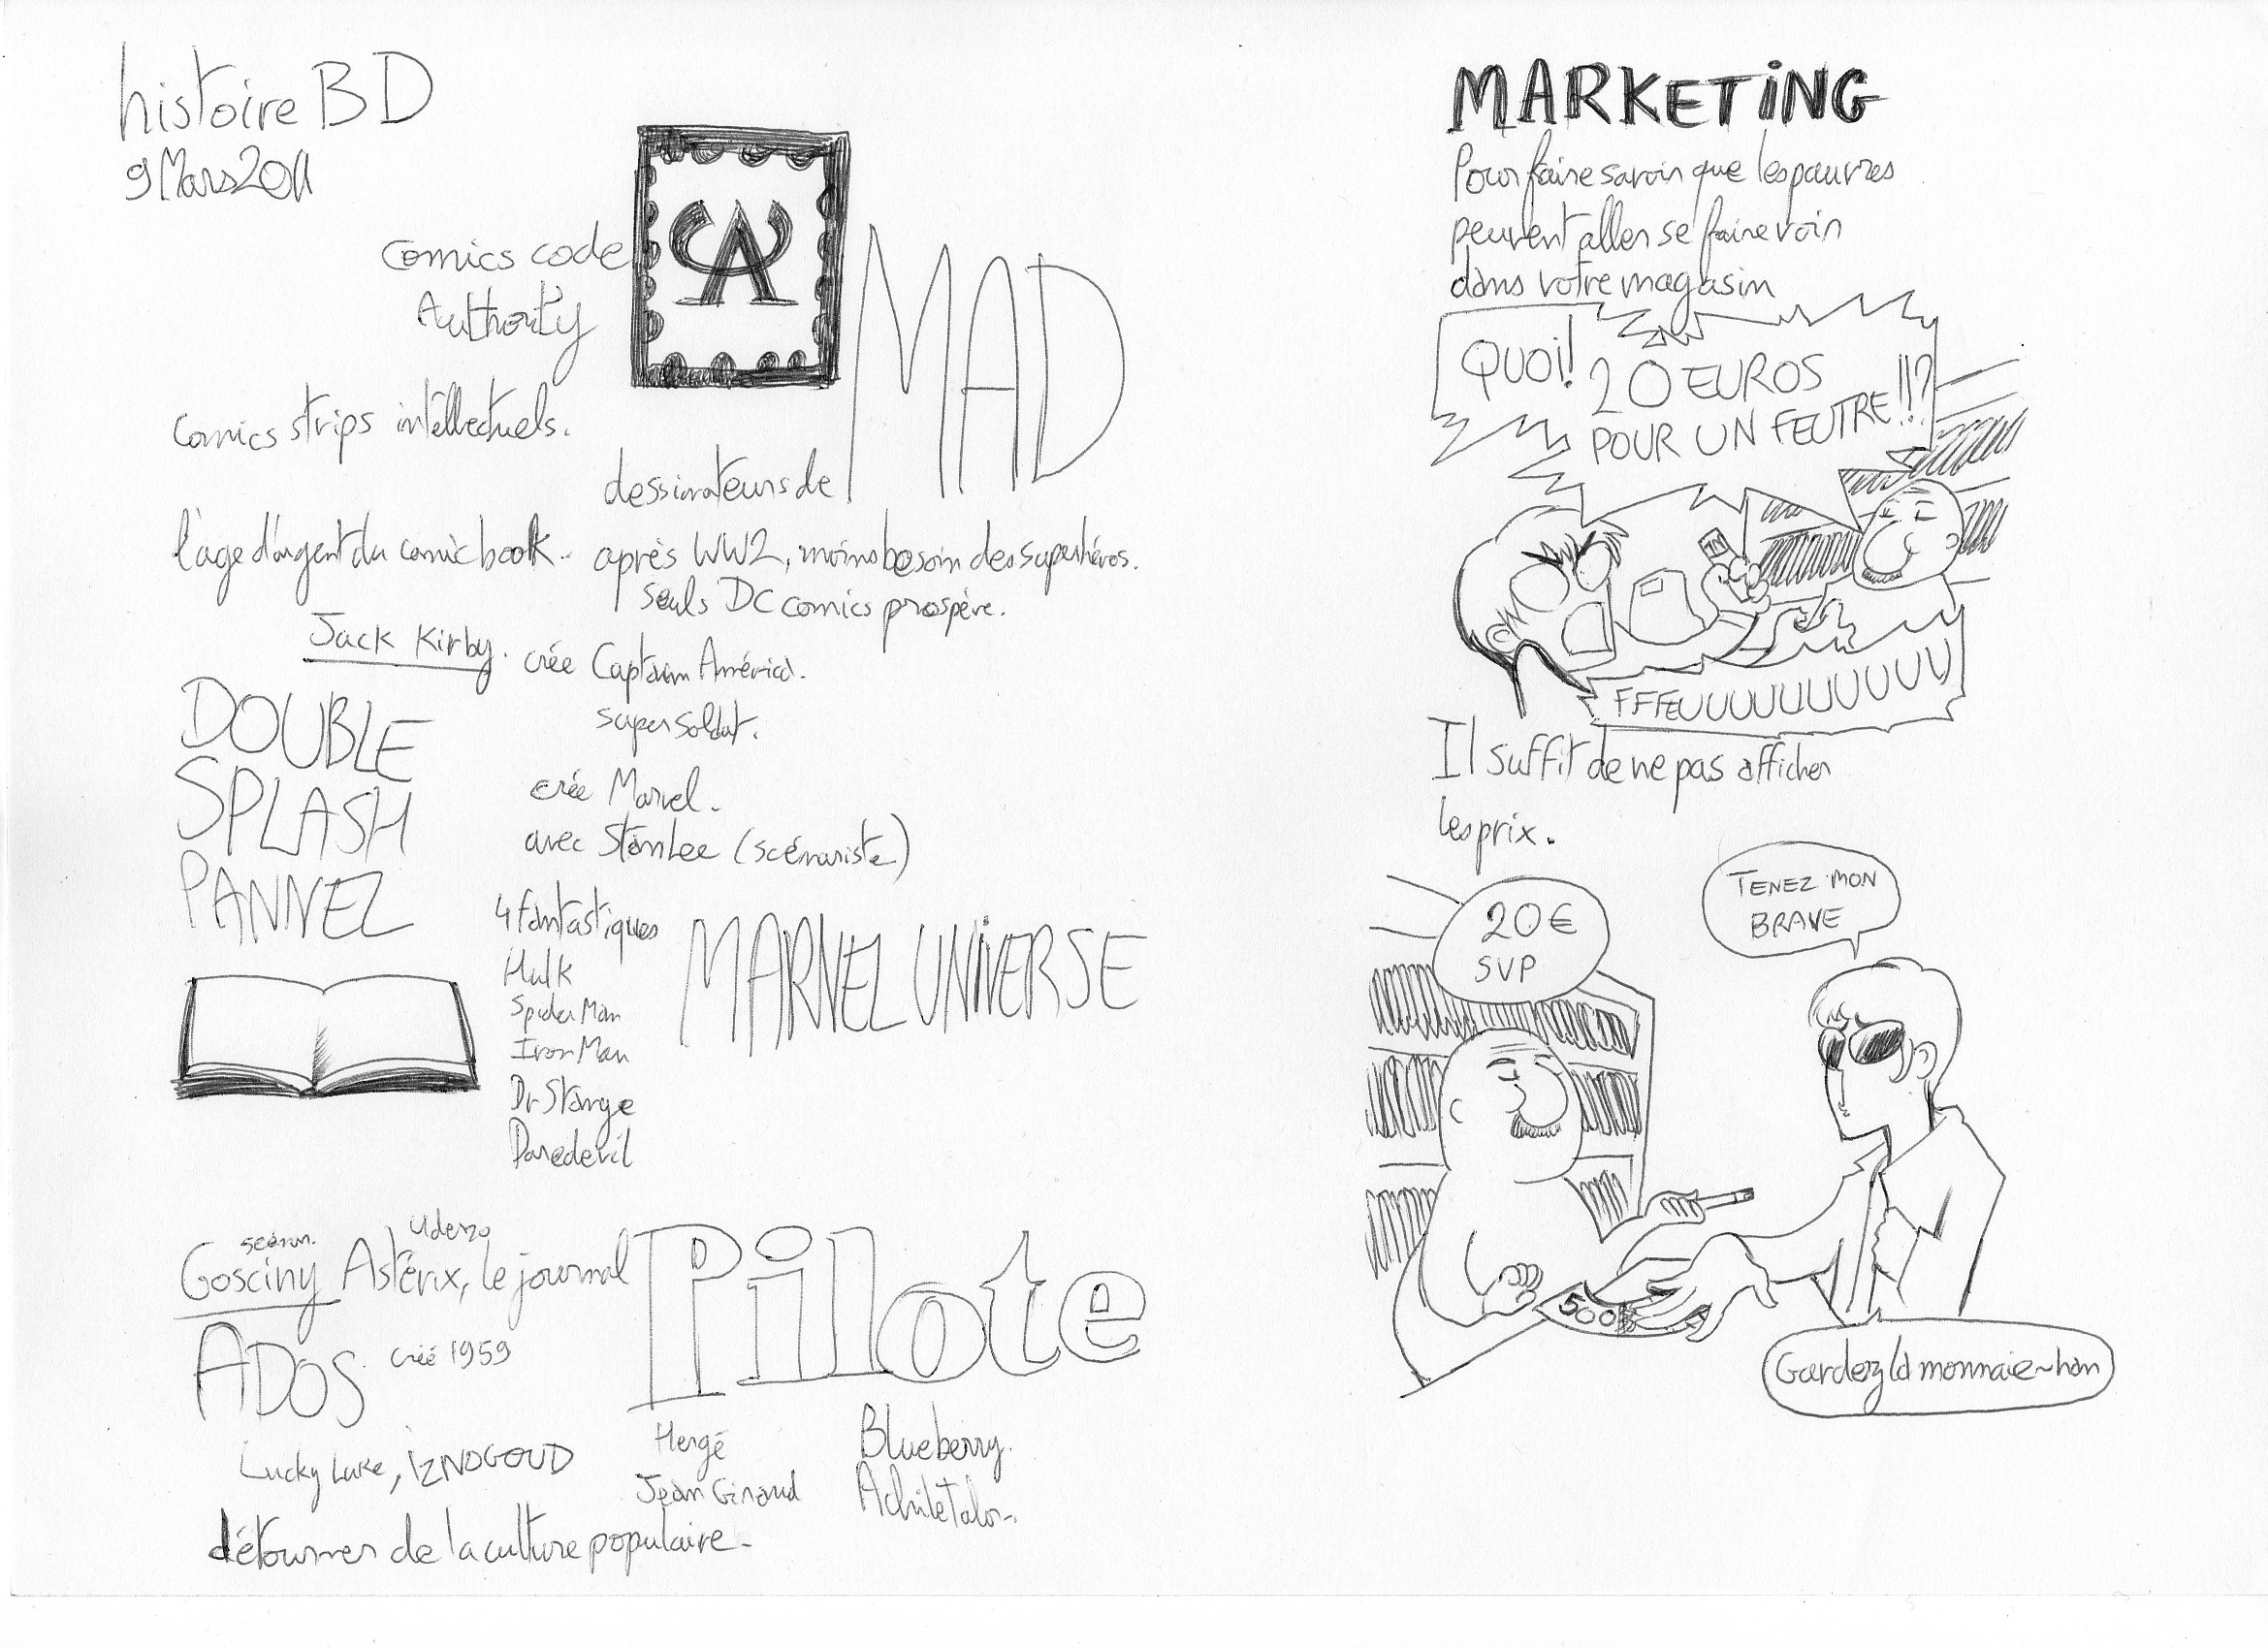 histoire BD
9 Mars 2011
Comics code
Authority
CA
MAD
Comics strips intellectuels.
dessinateurs de
l'age d'argent du comic book.. après WW2, moins besoin des superhéros.
seuls DC comics prospère.
Jack Kirby. crée Captain América.
super soldat.
DOUBLE
SPLASH
PANNEL
crée Marvel.
avec Stan Lee (scénariste)
4 fantastiques
Hulk
Spider Man
Iron Man
Dr Stange
Daredevil
MARVEL UNIVERSE
scénar. Uderzo
Gosciny Astérix, le journal
Pilote
ADOS. créé 1959
Lucky Luke, iZNOGOUD
Hergé
Jean Giraud
Blueberry.
Achile Talon.
détourner de la culture populaire.
MARKETiNG
Pour faire savoir que les pauvres
peuvent aller se faire voir
dans votre magasin
QUOI! 20 EUROS
POUR UN FEUTRE!!?
FFFEUUUUUUUUUU
Il suffit de ne pas afficher
les prix.
20€
SVP
TENEZ MON
BRAVE
500
Gardez la monnaie~han